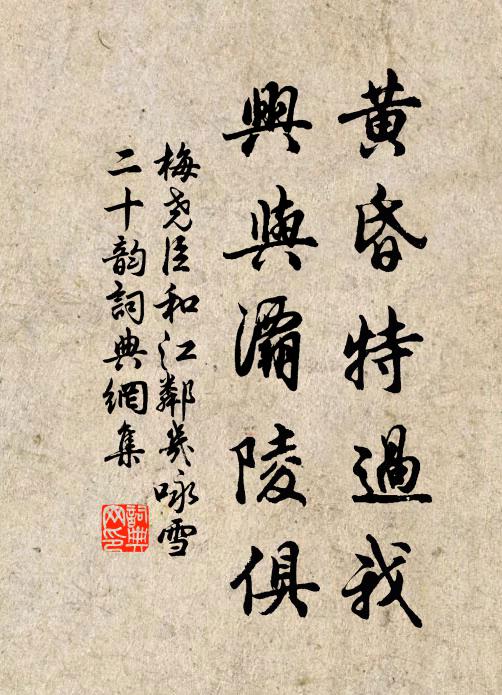 黄昏特過我
興與灞陵俱
梅尧臣和江鄰幾咏雪
二十韵詞典網集
詞典
网印